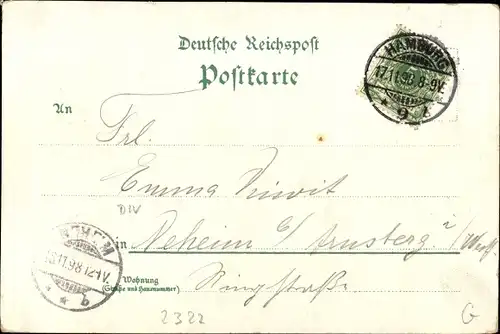 Deutsche Reichspost
Postkarte
HAMBURG
17.11.98.8-9V.
* 9 b
An
Frl.
Emma
DIV
in Neheim b/ Arnsberg i/ Westf
NEHEIM
18.11.98.12-1V.
* * b
Wohnung
(Straße und Hausnummer)
Ringstraße
2322
G